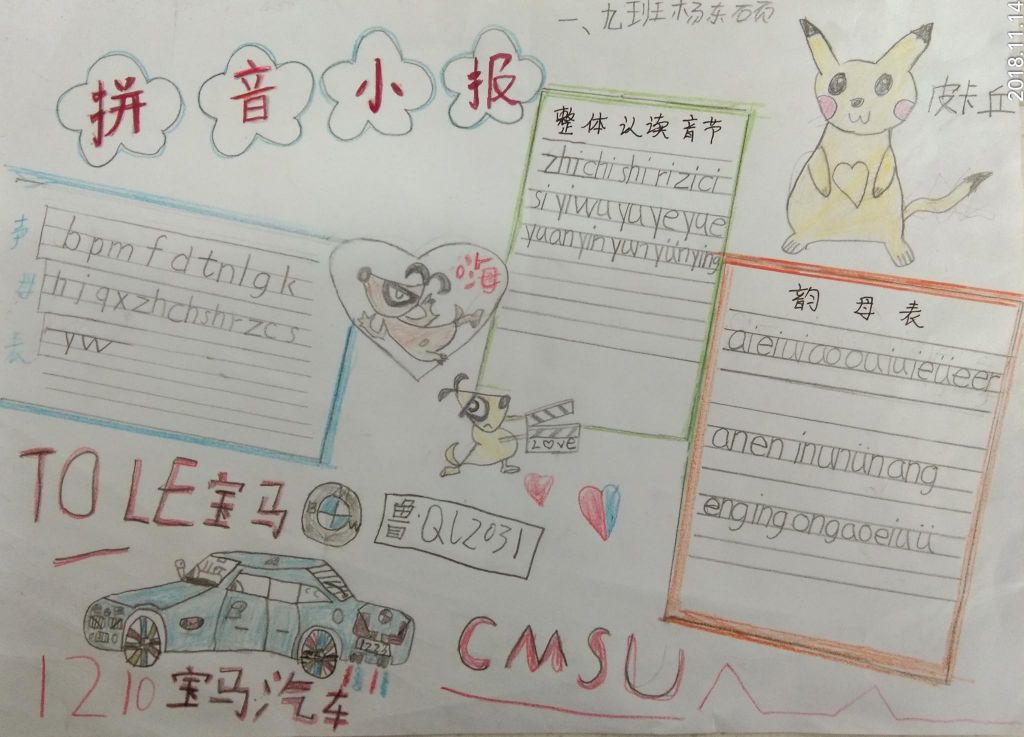 一、九班杨东硕
2018.11.14
拼音小报
皮卡丘
整体认读音节
zhi chi shi ri zi ci
si yi wu yu ye yue
yuan yin yun yun ying
声母表
b p m f d t n l g k
h j q x zh ch sh r z c s
y w
嗨
韵母表
ai ei ui ao ou iu ie üe er
an en in un ün ang
eng ing ong a o e i u ü
LOVE
TO LE 宝马
BW
鲁:QL2031
CMSU
1210 宝马汽车